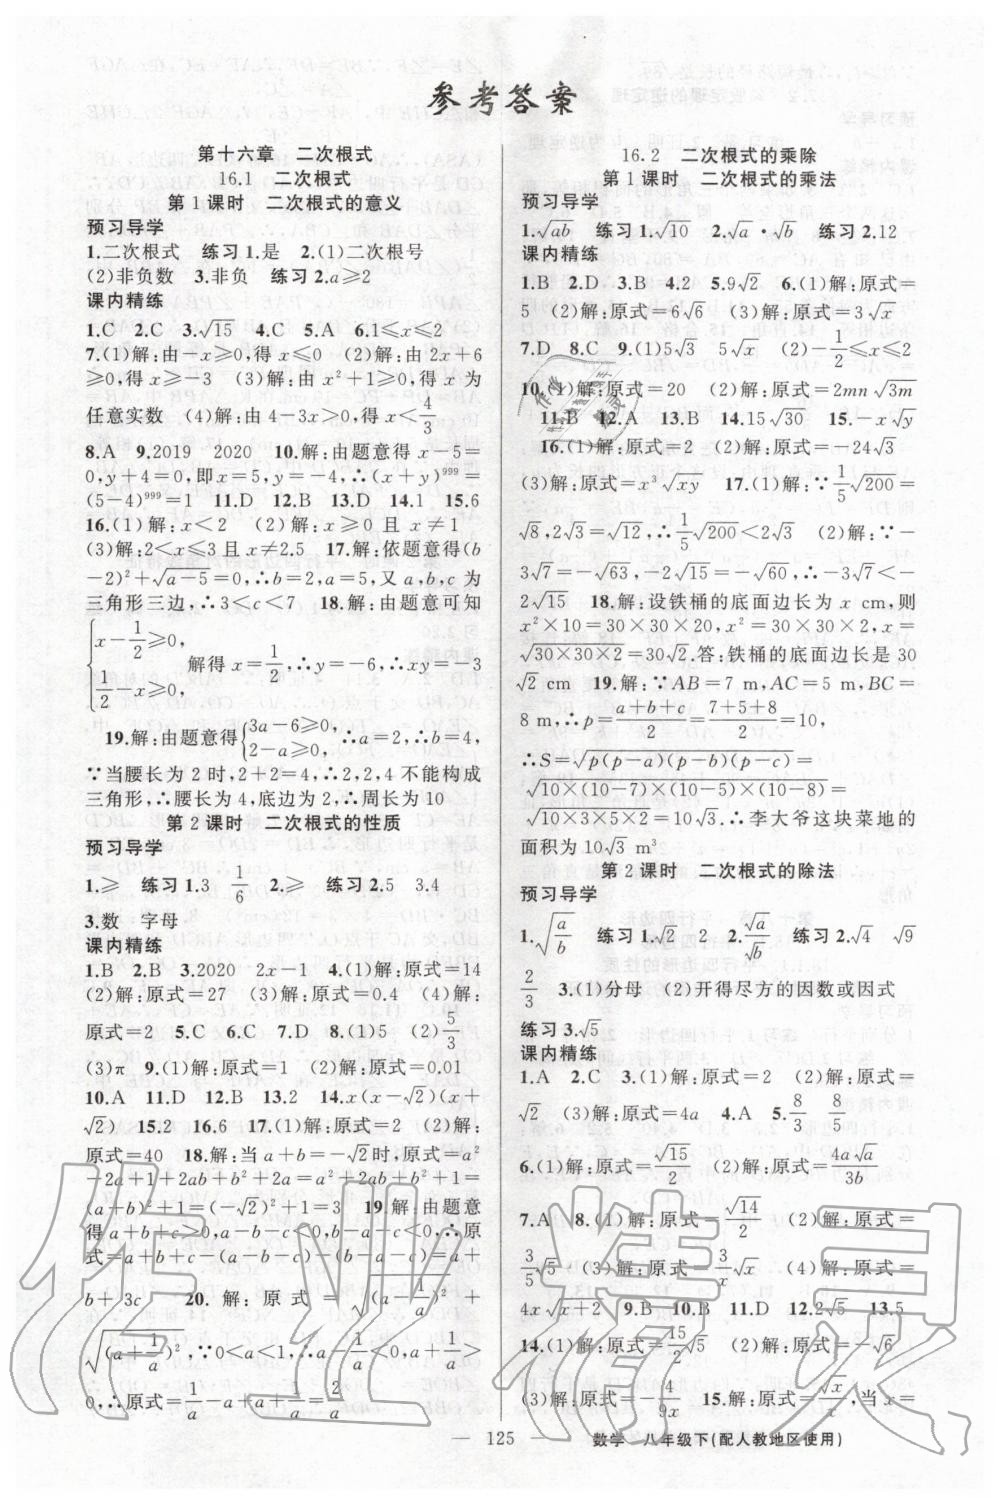 参考答案
第十六章　二次根式
16.1　二次根式
第1课时　二次根式的意义
预习导学
1.二次根式　练习1.是　2.(1)二次根号
(2)非负数　3.非负　练习2.a≥2
课内精练
1.C　2.C　3.√15　4.C　5.A　6.1≤x≤2
7.(1)解:由-x≥0,得x≤0　(2)解:由2x+6
≥0,得x≥-3　(3)解:由x²+1≥0,得x为
任意实数　(4)解:由4-3x>0,得x<4/3
8.A　9.2019　2020　10.解:由题意得x-5=
0,y+4=0,即x=5,y=-4,∴(x+y)⁹⁹⁹=
(5-4)⁹⁹⁹=1　11.D　12.B　13.D　14.1　15.6
16.(1)解:x<2　(2)解:x≥0且x≠1
(3)解:2<x≤3且x≠2.5　17.解:依题意得(b
-2)²+√(a-5)=0,∴b=2,a=5,又a,b,c为
三角形三边,∴3<c<7　18.解:由题意可知
{x-1/2≥0, 1/2-x≥0,　解得x=1/2,∴y=-6,∴xy=-3
19.解:由题意得{3a-6≥0, 2-a≥0,∴a=2,∴b=4,
∵当腰长为2时,2+2=4,∴2,2,4不能构成
三角形,∴腰长为4,底边为2,∴周长为10
第2课时　二次根式的性质
预习导学
1.≥　练习1.3　1/6　2.≥　练习2.5　3.4
3.数　字母
课内精练
1.B　2.B　3.2020　2x-1　4.(1)解:原式=14
(2)解:原式=27　(3)解:原式=0.4　(4)解:
原式=2　5.C　6.C　7.D　8.(1)5　(2)5/3
(3)π　9.(1)解:原式=1　(2)解:原式=0.01
10.A　11.D　12.B　13.2　14.x(x-√2)(x+
√2)　15.2　16.6　17.(1)解:原式=2　(2)解:
原式=40　18.解:当a+b=-√2时,原式=a²
-2a+1+2ab+b²+2a=a²+2ab+b²+1=
(a+b)²+1=(-√2)²+1=3　19.解:由题意
得a+b+c>0,a-b-c<0,b-a-c<0,∴原
式=a+b+c-(a-b-c)-(b-a-c)=a+
b+3c　20.解:原式=√(a-1/a)²+
√(a+1/a)²,∵0<a<1,∴a-1/a<
0,∴原式=1/a-a+a+1/a=2/a
16.2　二次根式的乘除
第1课时　二次根式的乘法
预习导学
1.√ab　练习1.√10　2.√a·√b　练习2.12
课内精练
1.B　2.D　3.B　4.2　5.9√2　6.(1)解:原式=
5　(2)解:原式=6√6　(3)解:原式=3√x
7.D　8.C　9.(1)5√3　5√x　(2)-1/2≤x≤2
10.(1)解:原式=20　(2)解:原式=2mn√3m
11.B　12.A　13.B　14.15√30　15.-x√y
16.(1)解:原式=2　(2)解:原式=-24√3
(3)解:原式=x³√xy　17.(1)解:∵1/5√200=
√8,2√3=√12,∴1/5√200<2√3　(2)解:∵-
3√7=-√63,-2√15=-√60,∴-3√7<-
2√15　18.解:设铁桶的底面边长为x cm,则
x²×10=30×30×20,x²=30×30×2,x=
√(30×30×2)=30√2.答:铁桶的底面边长是30
√2 cm　19.解:∵AB=7 m,AC=5 m,BC=
8 m,∴p=(a+b+c)/2=(7+5+8)/2=10,
∴S=√(p(p-a)(p-b)(p-c))=
√(10×(10-7)×(10-5)×(10-8))=
√(10×3×5×2)=10√3.∴李大爷这块菜地的
面积为10√3 m³
第2课时　二次根式的除法
预习导学
1.√(a/b)　练习1.√2　2　2.√a/√b　练习2.√4　√9
2/3　3.(1)分母　(2)开得尽方的因数或因式
练习3.√5
课内精练
1.A　2.C　3.(1)解:原式=2　(2)解:原式=
√2　(3)解:原式=4a　4.A　5.8/3　8/5
6.(1)解:原式=√15/2　(2)解:原式=4a√a/3b
7.A　8.(1)解:原式=√14/2　(2)解:原式=
3/5√5　(3)解:原式=3/x√x　(4)解:原式=
4x√(x+2)　9.B　10.B　11.D　12.2√5　13.5
14.(1)解:原式=15/2√2　(2)解:原式=-√6
(3)解:原式=4/9x　15.解:原式=√x/x,当x=
— 125 —　数学　八年级下(配人教地区使用)
作业精灵